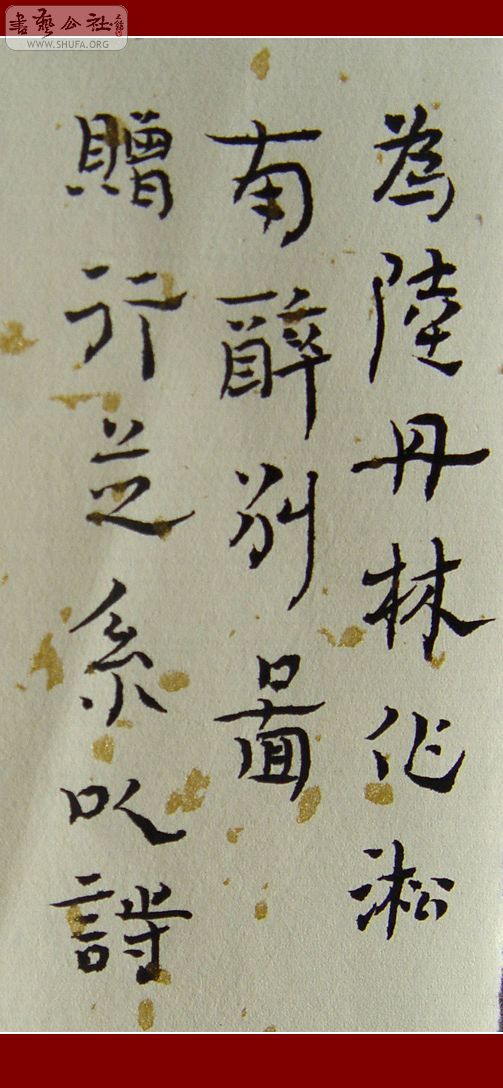 書藝公社
WWW.SHUFA.ORG
為陸丹林作淞
南醉別圖
贈行並系以詩